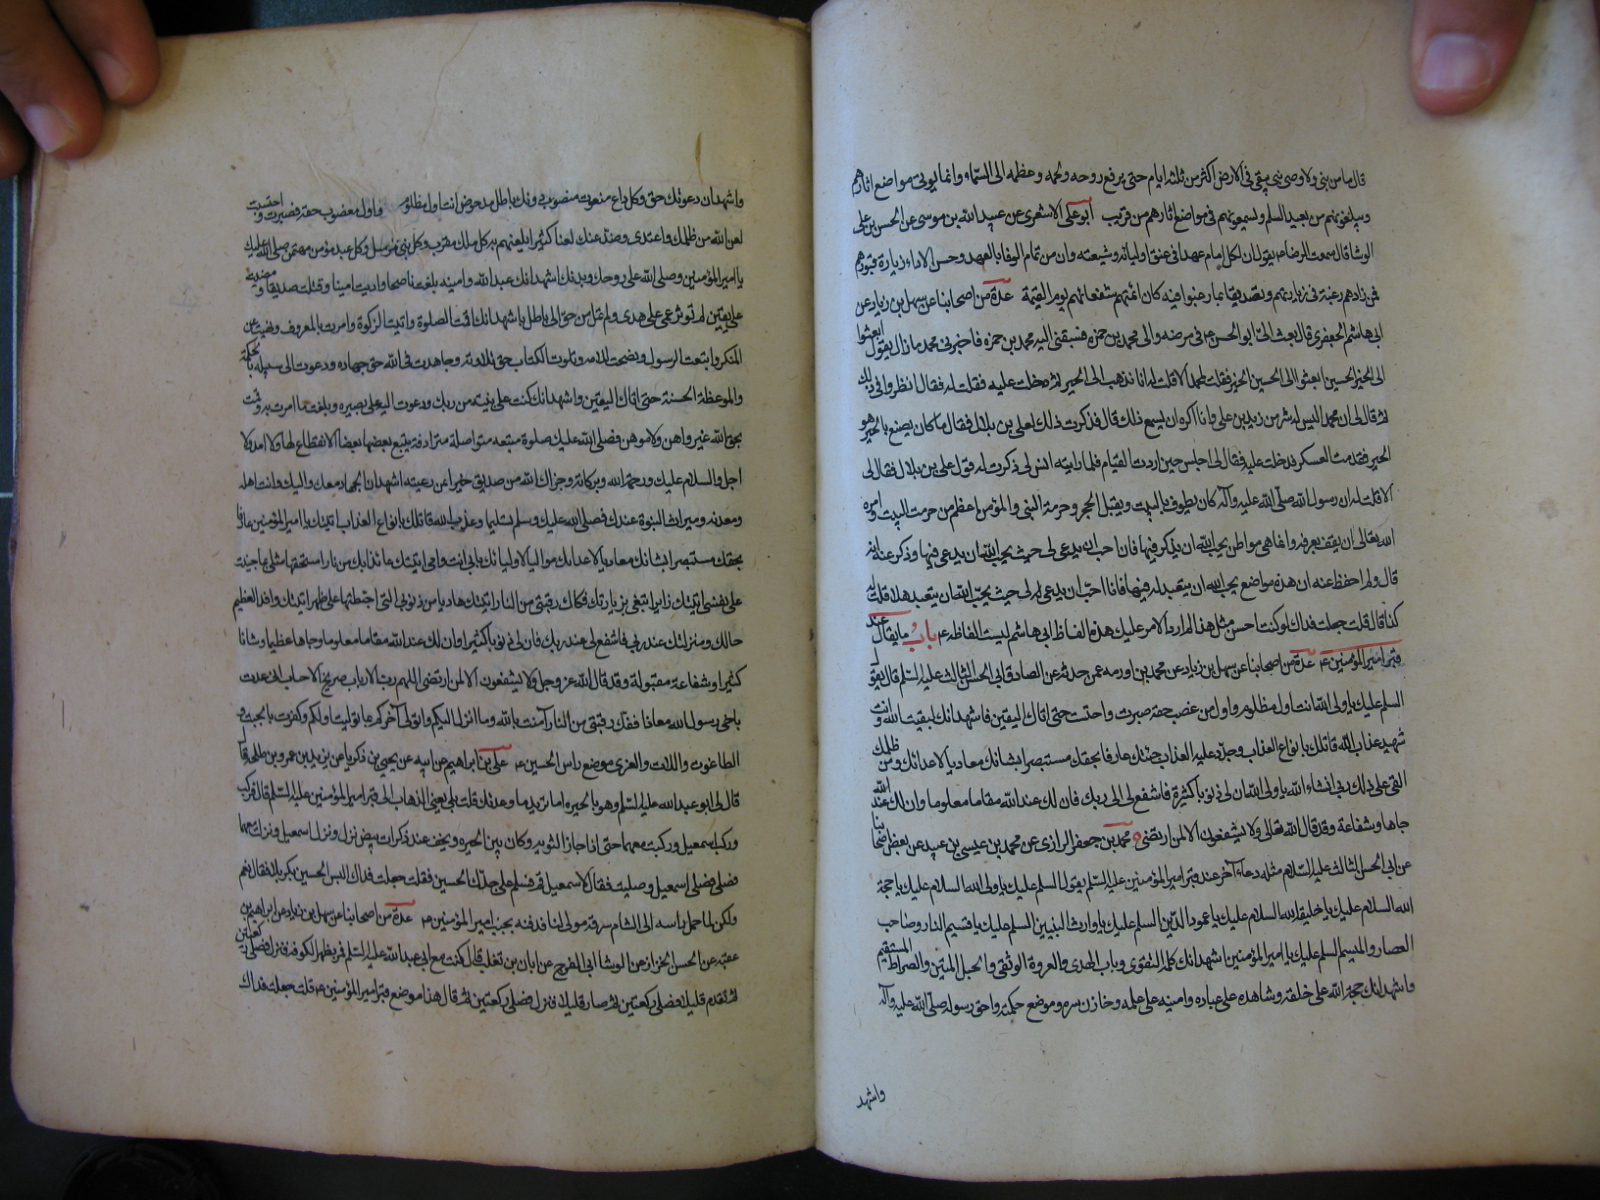 قال ما من نبى ولا وصى نبى يبقى فى الارض اكثر من ثلثة ايام حتى يرفع روحه ولحمه وعظمه الى السماء وانما يوتى مواضع اثارهم
ويبلغونهم من بعيد السلم ويسمعونهم فى مواضع اثارهم من قريب ابو على الاشعرى عن عبيد الله بن موسى عن الحسن بن على
الوشا قال سمعت الرضا ع يقول ان لكل امام عهدا فى عنق اوليائه وشيعته وان من تمام الوفا بالعهد وحسن الاداء زيارة قبورهم
فمن زارهم رغبة فى زيارتهم وتصديقا بما رغبوا فيه كان ائمتهم شفعائهم يوم القيمة عدة من اصحابنا عن سهل بن زياد عن
ابى هاشم الجعفرى قال بعث الى ابو الحسن ع فى مرضه والى محمد بن حمزه فسبقنى اليه محمد بن حمزه فاخبرنى محمد ما زال يقول ابعثوا
الى الحير ابعثوا الى الحير فقلت لمحمد الا قلت له انا نذهب الى الحير ثم دخلت عليه فقلت له فقال انظروا فى ذلك
ثم قال لى ان محمد اليس له سر من زيد بن على وانا اكره ان يسمع ذلك قال فذكرت ذلك لعلى بن بلال فقال ما كان يصنع بالحير هو
الحير فقدمت العسكر فدخلت عليه فقال لى اجلس حين اردت القيام فلما رايته انس لى ذكرت له قول على بن بلال فقال لى
الا قلت له ان رسول الله صلى الله عليه وآله كان يطوف بالبيت ويقبل الحجر وحرمة النبى والمؤمن اعظم من حرمت البيت وامره
الله تعالى ان يقف بعرفه وانما هى مواطن يحب الله ان يذكر فيها فانا احب ان يدعى لى حيث يحب الله ان يدعى فيها وذكر عنه انه
قال ولم احفظ عنه ان هذه مواضع يحب الله ان يتعبد له فيها فانا احب ان يدعى لى حيث يحب الله ان يتعبد هلا قلت له
كذا قال قلت جعلت فداك لو كنت احسن مثل هذا لم ارد الامر عليك هذه الفاظ ابى هاشم ليست الفاظه ع باب ما يقال عند
قبر امير المؤمنين ع عدة من اصحابنا عن سهل بن زياد عن محمد بن اورمه عمن حدثه عن الصادق ابى الحسن الثالث عليه السلم قال يقول
السلم عليك يا ولى الله انت اول مظلوم واول من غصب حقه صبرت واحتسبت حتى اتاك اليقين فاشهد انك لقيت الله وانت
شهيد عذب الله قاتلك بانواع العذاب وجدد عليه العذاب جئتك عارفا بحقك مستبصرا بشانك معاديا لاعدائك ومن ظلمك
القى على ذلك ربى انشاء الله يا ولى الله ان لى ذنوبا كثيرة فاشفع لى الى ربك فان لك عند الله مقاما معلوما وان لك عند الله
جاها وشفاعة وقد قال الله تعالى ولا يشفعون الا لمن ارتضى محمد بن جعفر الرازى عن محمد بن عيسى بن عبيد عن بعض اصحابنا
عن ابى الحسن الثالث عليه السلام مثله دعاء آخر عند قبر امير المؤمنين عليه السلم يقول السلم عليك يا ولى الله السلام عليك يا حجة
الله السلام عليك يا خليفة الله السلام عليك يا عمود الدين السلم عليك يا وارث النبيين السلم عليك يا قسيم النار وصاحب
العصا والميسم السلم عليك يا امير المؤمنين اشهد انك كلمة التقوى وباب الهدى والعروة الوثقى والحبل المتين والصراط المستقيم
واشهد انك حجة الله على خلقه وشاهده على عباده وامينه على علمه وخازن سره وموضع حكمته واخو رسوله صلى الله عليه وآله
واشهد
واشهد ان دعوتك حق وكل داع منصوب دونك باطل مدحوض انت اول مظلوم واول مغصوب حقه فصبرت واحتسبت
لعن الله من ظلمك واعتدى وصد عنك لعنا كثيرا يلعنهم به كل ملك مقرب وكل نبى مرسل وكل عبد مؤمن ممتحن صلى الله عليك
يا امير المؤمنين وصلى الله على روحك وبدنك اشهد انك عبد الله وامينه بلغت ناصحا واديت امينا وقتلت صديقا ومضيت
على يقين لم توثر عمى على هدى ولم تمل من حق الى باطل اشهد انك اقمت الصلوة واتيت الزكوة وامرت بالمعروف ونهيت عن
المنكر واتبعت الرسول ونصحت للامه وتلوت الكتاب حق تلاوته وجاهدت فى الله حق جهاده ودعوت الى سبيله بالحكمة
والموعظة الحسنة حتى اتاك اليقين واشهد انك كنت على بينة من ربك ودعوت اليه على بصيره وبلغت ما امرت به وقمت
بحق الله غير واهن ولا موهن فصلى الله عليك صلوة متبعه متواصلة مترادفة يتبع بعضها بعضا لا انقطاع لها ولا امد ولا
اجل والسلام عليك ورحمة الله وبركاته وجزاك الله من صديق خيرا عن رعيته اشهد ان الجهاد معك واليك وانت اهله
ومعدنه وميراث النبوة عندك فصلى الله عليك وسلم تسليما وعذب الله قاتلك بانواع العذاب اتيتك يا امير المؤمنين عارفا
بحقك مستبصرا بشانك معاديا لاعدائك مواليا لاوليائك بابى انت وامى اتيتك عائذا بك من نار استحقها مثلى بما جنيت
على نفسى اتيتك زايرا ابتغى بزيارتك فكاك رقبتى من النار اتيتك هاربا من ذنوبى التى احتطبتها على ظهرى اتيتك وافدا لعظيم
حالك ومنزلتك عند ربى فاشفع لى عند ربك فان لى ذنوبا كثيرا وان لك عند الله مقاما معلوما وجاها عظيما وشانا
كثيرا وشفاعة مقبولة وقد قال الله عز وجل ولا يشفعون الا لمن ارتضى اللهم رب الارباب صريخ الاحباب انى عذت
باخى رسول الله معاذا ففك رقبتى من النار آمنت بالله وما انزل اليكم واتولى آخركم بما توليت اولكم وكفرت بالجبت و
الطاغوت واللات والعزى موضع راس الحسين ع على بن ابراهيم عن ابيه عن يحيى بن زكريا عن يزيد بن عمرو بن طلحة قال
قال لى ابو عبد الله عليه السلم وهو بالحيره اما تريد ما وعدتك قلت بلى يعنى الذهاب الى قبر امير المؤمنين عليه السلم قال فركب
وركب اسمعيل وركبت معهما حتى اذا جاز الثويه وكان بين الحيره والنجف عند ذكوات بيض نزل ونزل اسمعيل ونزلت معهما
فصلى وصلى اسمعيل وصليت فقال لاسمعيل قم فسلم على جدك الحسين فقلت جعلت فداك اليس الحسين بكربلا فقال نعم
ولكن لما حمل راسه الى الشام سرقه مولى لنا فدفنه بجنب امير المؤمنين ع عدة من اصحابنا عن سهل بن زياد عن ابراهيم بن
عقبه عن الحسن الخزاز عن الوشا ابى الفرج عن ابان بن تغلب قال كنت مع ابى عبد الله عليه السلم فمر بظهر الكوفه فنزل فصلى ركعتين
ثم تقدم قليلا فصلى ركعتين ثم صار قليلا فنزل فصلى ركعتين ثم قال هذا موضع قبر امير المؤمنين ع قلت جعلت فداك